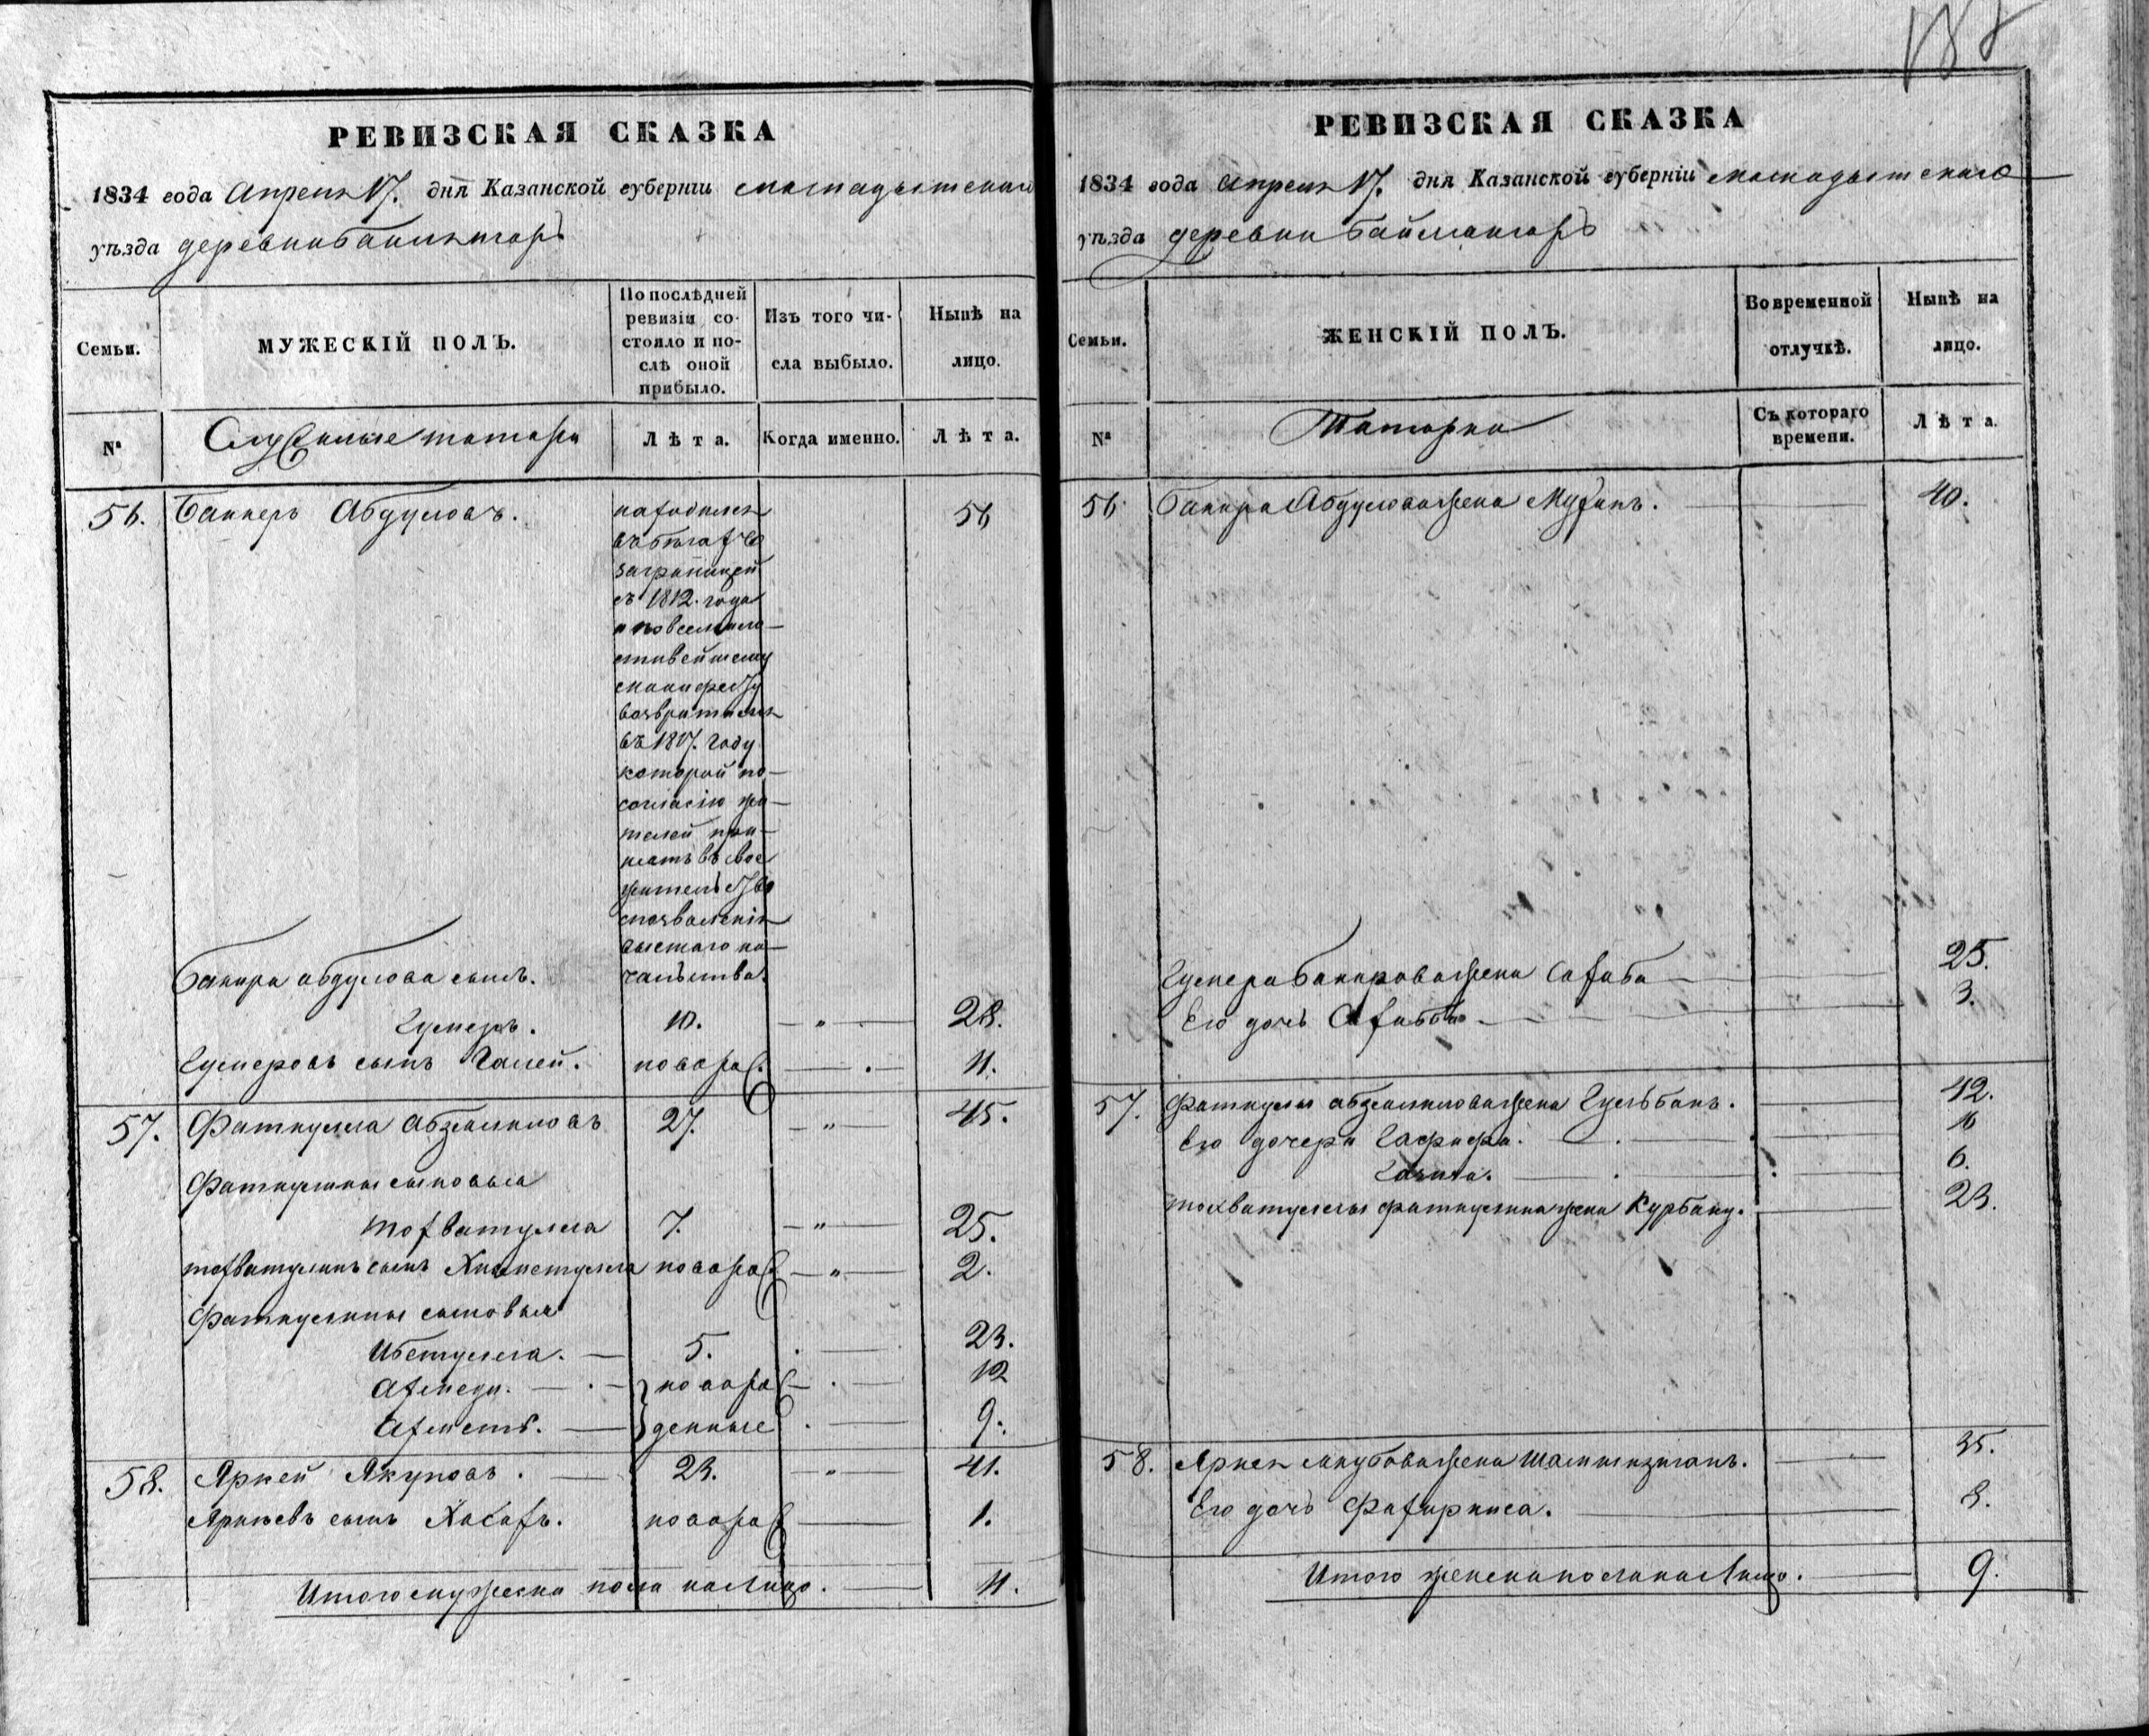 РЕВИЗСКАЯ СКАЗКА
1834 года Апреля 17. дня Казанской губернiи Мамадышскаго
уѣзда деревни Баймянгоръ
Семьи.
МУЖЕСКIЙ ПОЛЪ.
По послѣдней
ревизiи со-
стояло и по-
слѣ оной
прибыло.
Изъ того чи-
сла выбыло.
Нынѣ на
лицо.
№
Служилые татары
Лѣта.
Когда именно.
Лѣта.
56. Баккеръ Абдуловъ. находился 56
въ бегах
заграницей
съ 1812. года
и по всемило-
стивейшему
манифесту
возвратился
въ 1817. году
которой по-
согласiю жи-
телей при-
нятъ въ свое
жительство
с позволенiя
высшаго на-
Бакира Абдулова сынъ. чальства.
Гумеръ. 10. — " — 28.
Гумеровъ сынъ Галей. новорож. — . — 11.
57. Фаткулла Абзелиловъ 27. — " — 45.
Фаткуллины сыновья
Тохватулла 7. — " — 25.
Тохватуллинъ сынъ Хисметулла новорож — " — 2.
Фаткуллины сыновья
Ибетулла. — 5. . — 23.
Ахмеди. — . — } новорож — . — 12
Ахметъ. — } денные . — 9.
58. Яркей Якуповъ. — 23. — " — 41.
Яркѣевъ сынъ Хасафъ. новорож — 1.
Итого мужеска пола на лицо. — 11.
188
РЕВИЗСКАЯ СКАЗКА
1834 года Апреля 17. дня Казанской губернiи Мамадышскаго
уѣзда деревни Баймянгоръ
Семьи.
ЖЕНСКIЙ ПОЛЪ.
Во временной
отлучкѣ.
Нынѣ на
лицо.
№
Татарки
Съ котораго
времени.
Лѣта.
56 Бакира Абдулова жена Муфикъ. — 40.
Гумера Бакирова жена Сахаба — 25.
Его дочь — 3.
57. Фаткуллы Абзелилова жена Гульбанъ. — 42.
Его дочери Гафифа. — . — 16
— . — 6.
Тохватуллы Фаткуллина жена Курбану. — 23.
58. Яркея Якупова жена — 35.
Его дочь Фахирниса. — 8.
Итого женска пола на лицо. — 9.